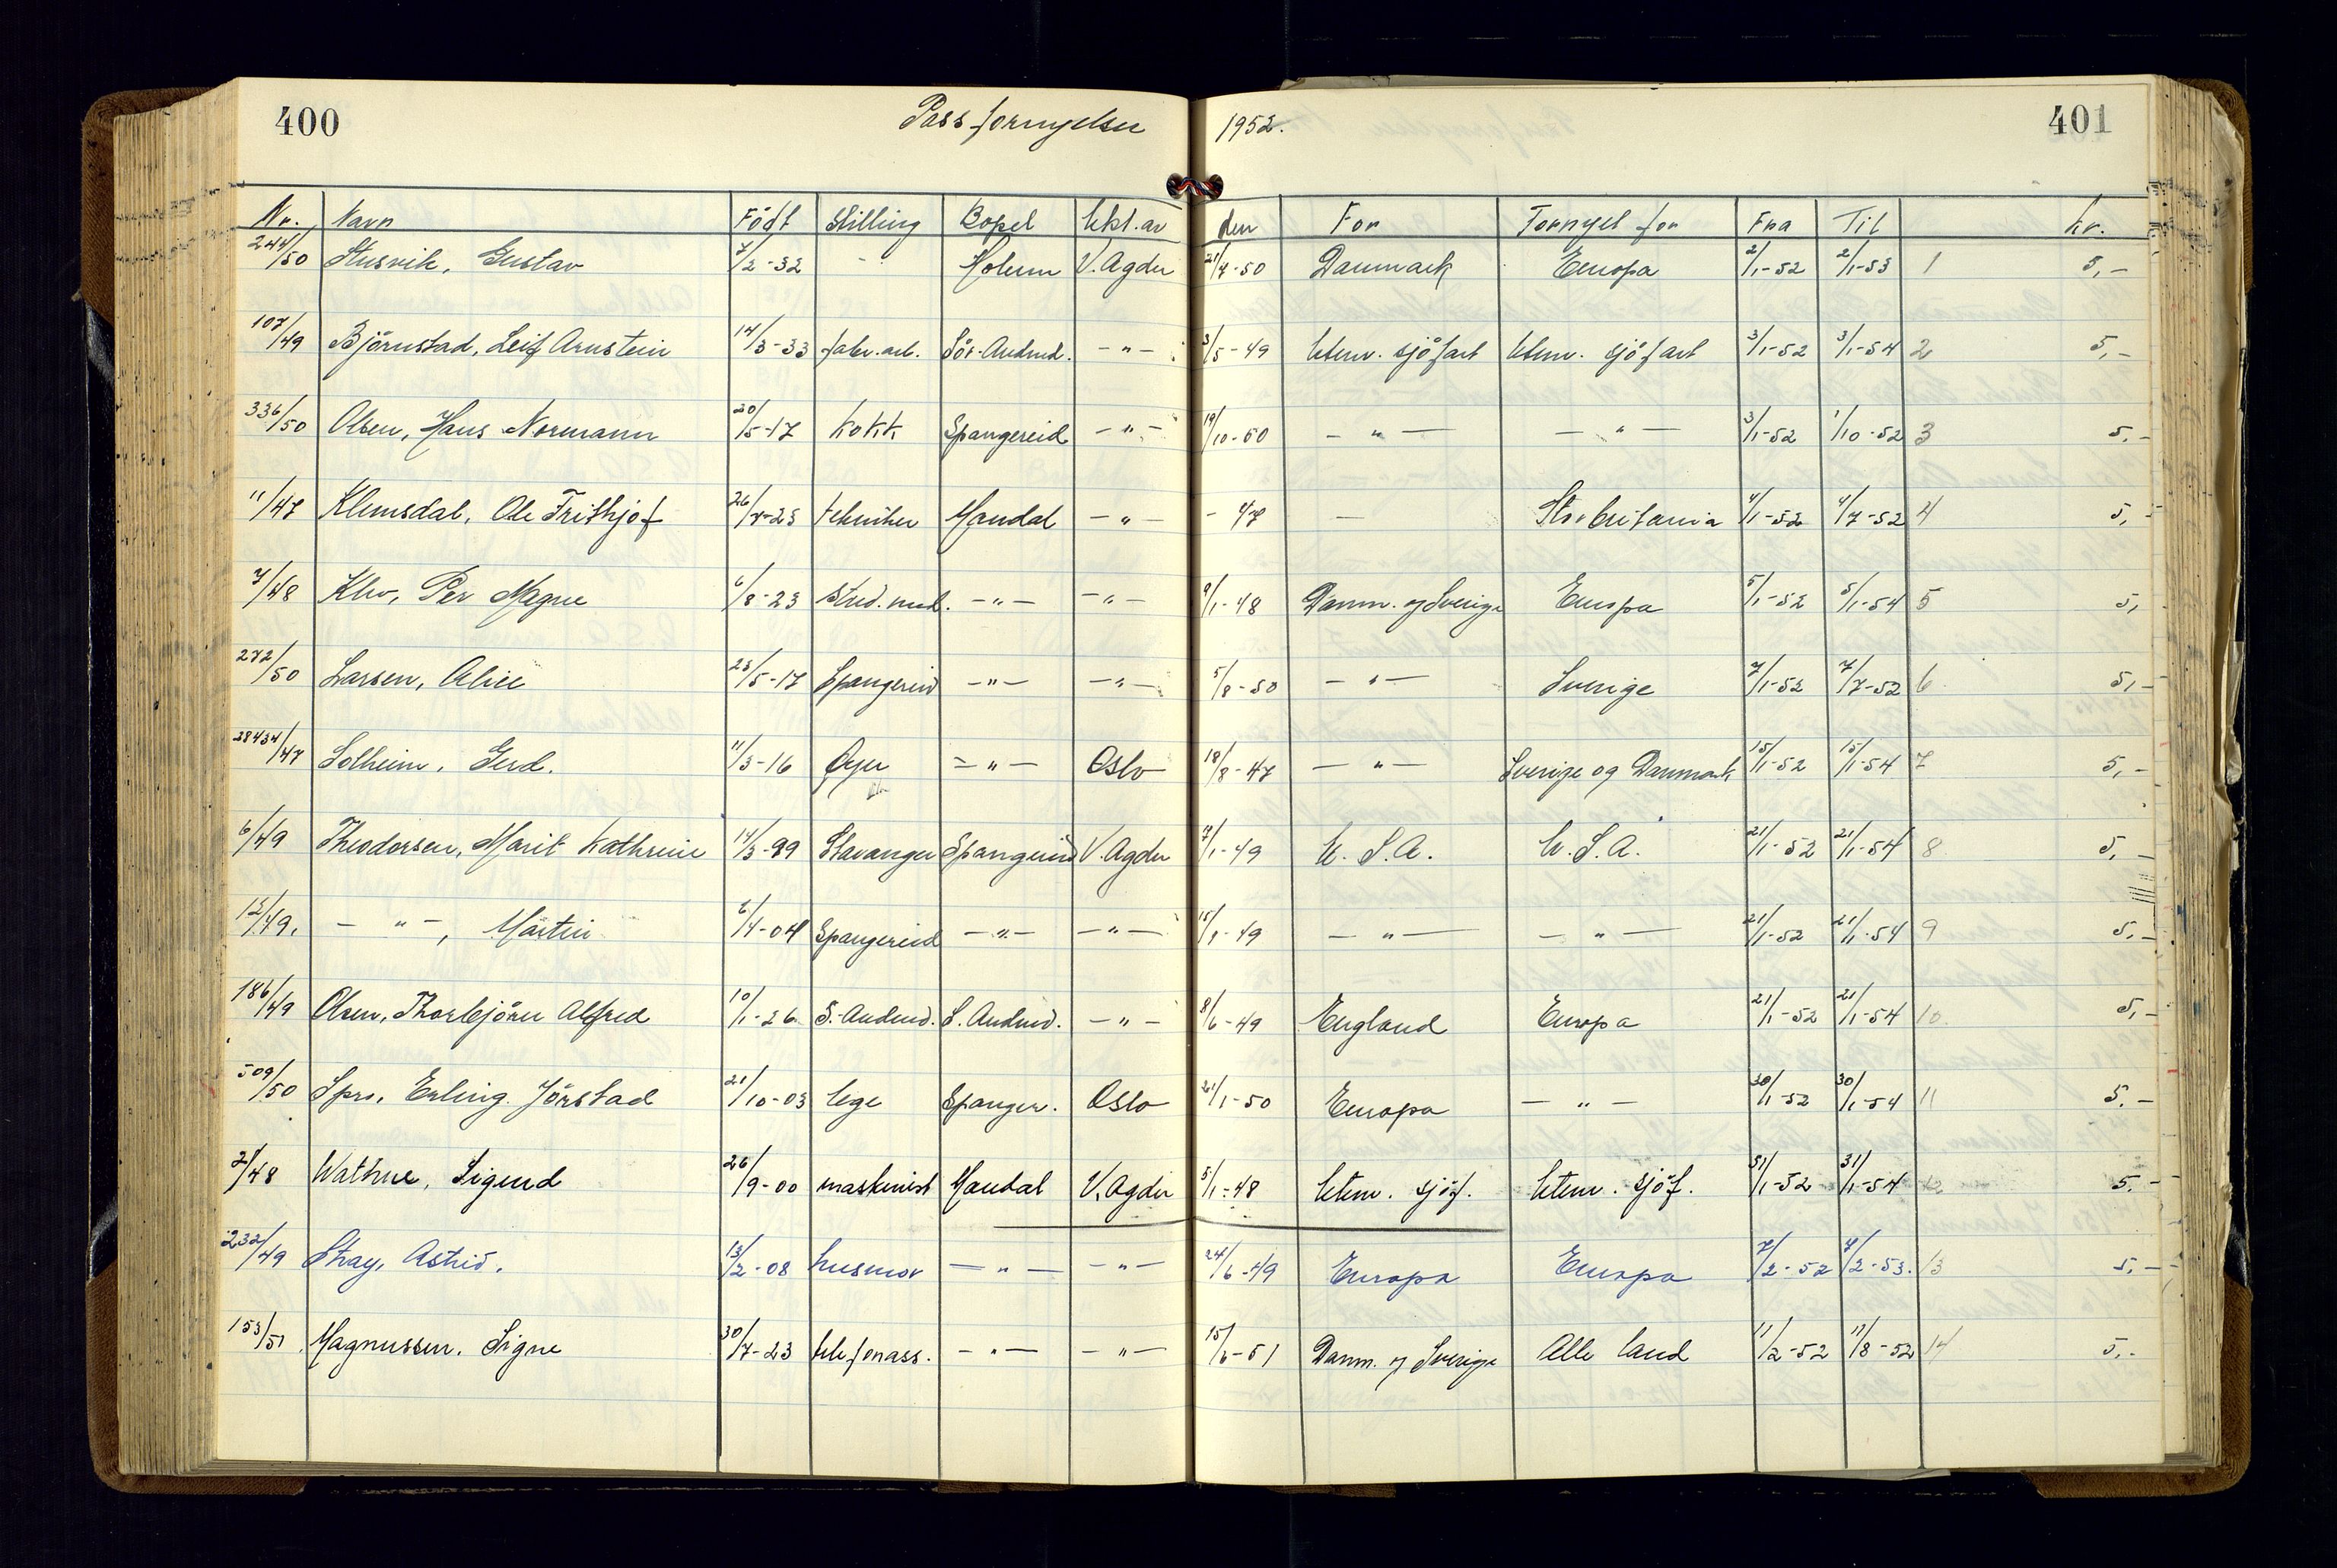 400 Pass fornyelser 1952. 401
Nr. Navn Födt Stilling Bopel Utst. av den For Fornyet for Fra Til kr.
244/50 Stusvik, Gustav 7/2-32 - Holum V. Agder 21/7-50 Danmark Europa 2/1-52 2/1-53 1 5,-
107/49 Björnstad, Leif Arnstein 14/3-33 fabr. arb. Sör-Audned. -"- 3/5-49 Utenr. sjöfart Utenr. sjöfart 3/1-52 3/1-54 2 5,-
336/50 Olsen, Hans Normann 20/5-17 Kokk Spangereid -"- 19/10-50 -"- -"- 3/1-52 1/10-52 3 5,-
11/47 Klemsdal, Ole Frithjof 26/7-23 tekniker Mandal -"- - 47 - Storbritania 4/1-52 4/7-52 4 5,-
7/48 Klev, Per Magne 6/8-23 stud. med. -"- -"- 9/1-48 Danm. og Sverige Europa 5/1-52 5/1-54 5 5,
272/50 Larsen, Alice 23/5-17 Spangereid -"- -"- 5/8-50 -"- Sverige 7/1-52 7/7-52 6 5,-
28434/47 Solheim, Gerd. 11/3-16 Øyer -"- Oslo 18/8-47 -"- Sverige og Danmark 15/1-52 15/1-54 7 5,-
6/49 Theodorsen, Marit Kathrine 14/3-99 Stavanger Spangereid V. Agder 7/1-49 U.S.A. U.S.A. 21/1-52 21/1-54 8 5,-
12/49. -"-, Martin 6/4-04 Spangereid -"- -"- 15/1-49 -"- -"- 21/1-52 21/1-54 9 5,-
186/49 Olsen, Thorbjörn Alfred 10/1-26 S.-Audned. S. Audned. -"- 8/6-49 England Europa 21/1-52 21/1-54 10 5,-
509/50 Spro, Erling Jörstad 21/10-03 lege Spanger. Oslo 21/1-50 Europa -"- 30/1-52 30/1-54 11 5.-
2/48 Wathne, Sigurd 26/9-00 maskinist Mandal V. Agder 5/1-48 Utenr. sjöf. Utenr. sjöf. 31/1-52 31/1-54 12 5.-
232/49 Stray, Astrid. 13/2-08 husmor -"- -"- 24/6-49 Europa Europa 7/2-52 7/2-53. 13 5,-
153/51 Magnussen, Signe 30/7-23 telefonass. -"- -"- 15/6-51 Danm. og Sverige Alle land 11/2-52 11/8-52 14 5,-